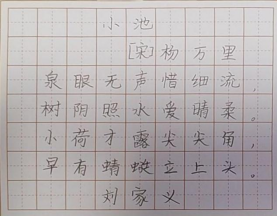 小池
[宋]杨万里
泉眼无声惜细流，
树阴照水爱晴柔。
小荷才露尖尖角，
早有蜻蜓立上头。
刘家义